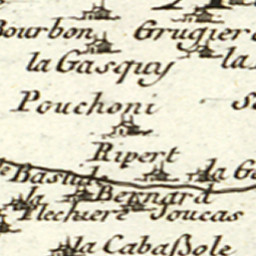 Bourbon Grugier
la Gasquy la
Pouchoni
Ripert
Bastide la
Bernard
la
Plechiere Joucas
la Cabaßole